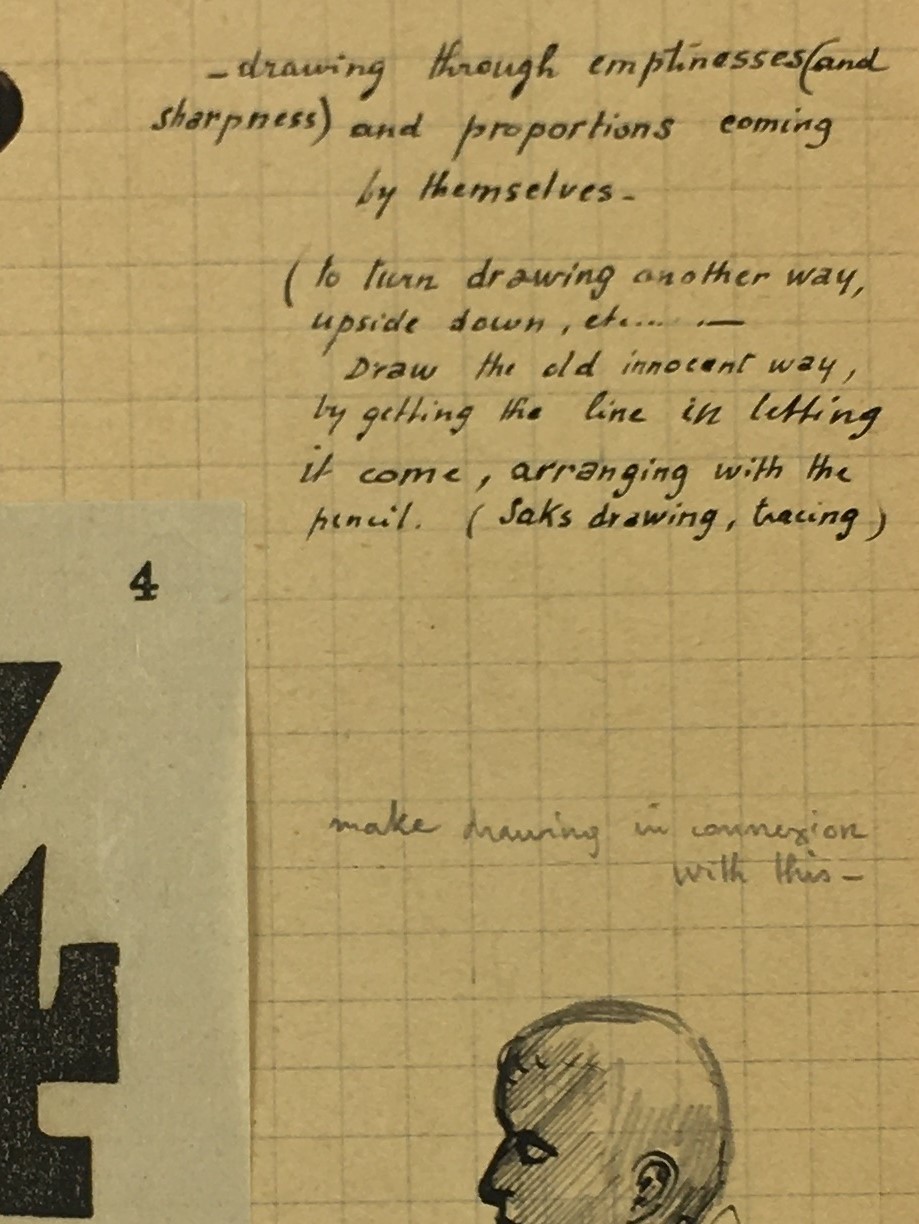 - drawing through emptinesses (and
sharpness) and proportions coming
by themselves -
( to turn drawing another way,
upside down, etc... . —
Draw the old innocent way,
by getting the line in letting
it come, arranging with the
pencil. ( Saks drawing, tracing )
4
make drawing in connexion
with this -